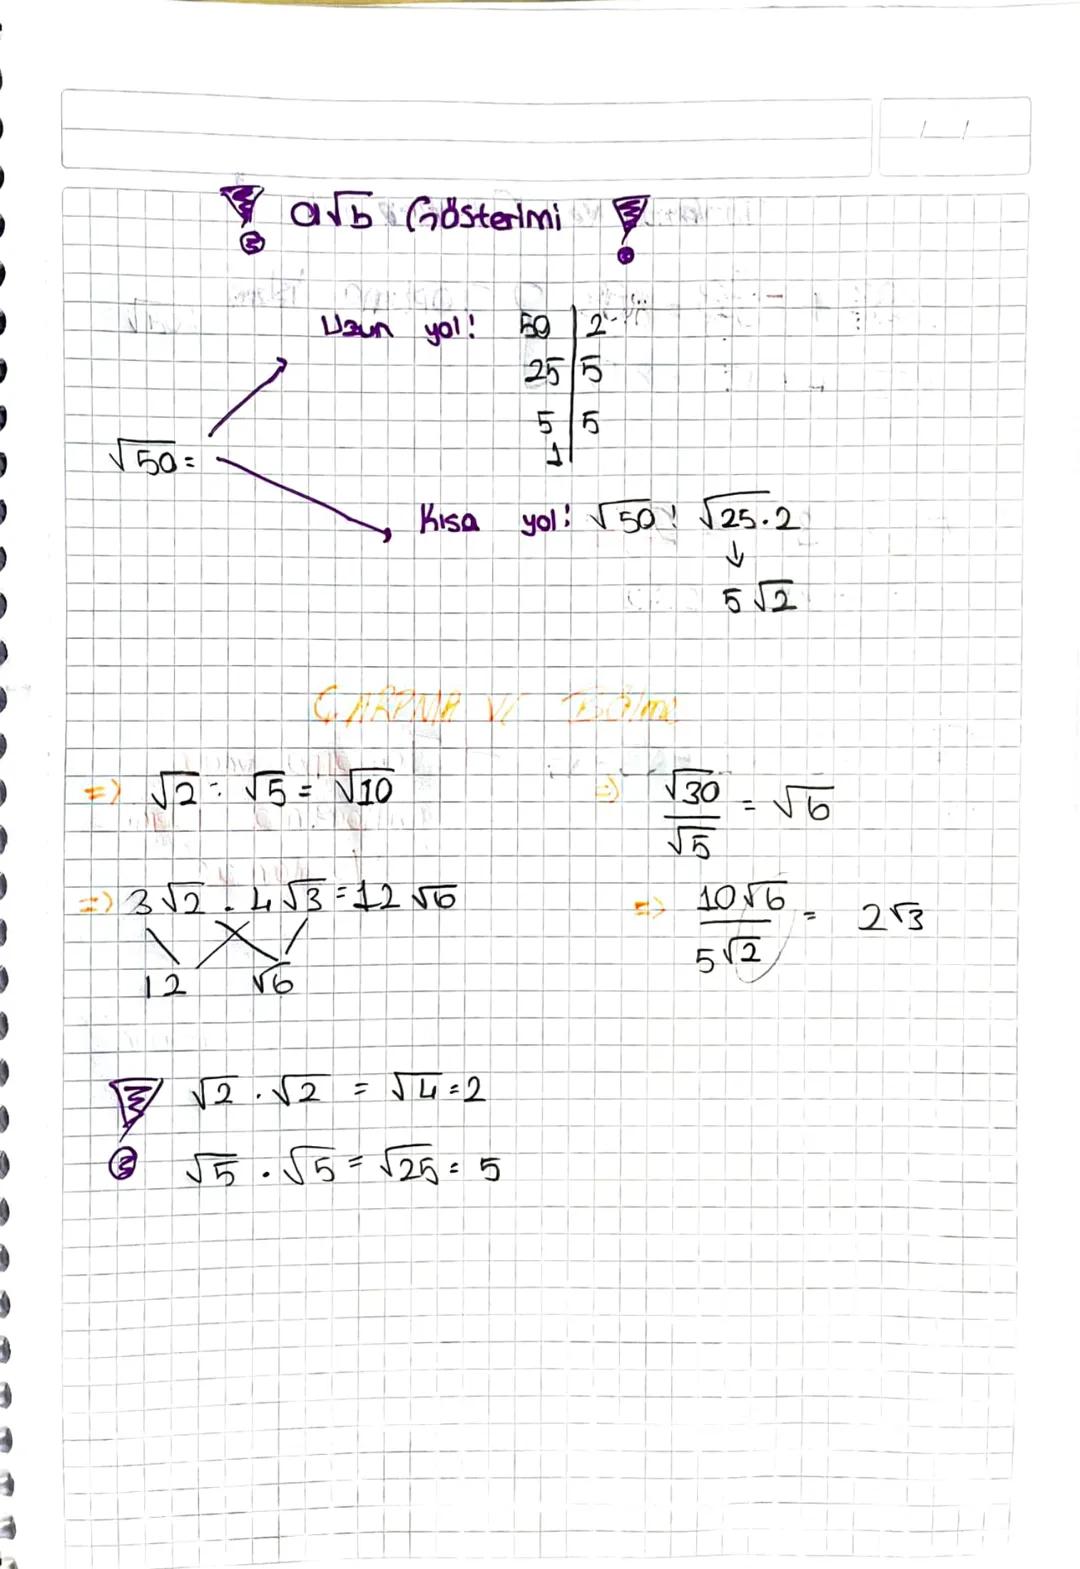 a√b Gösterimi
Uzun yol: 50 | 2
25 | 5
5 | 5
1
√50 =
Kısa yol: √50 : √25.2
↓
5√2
ÇARPMA Ve Bölme
=> √2 : √5 = √10
=> √30 / √5 = √6
=> 3√2 . 4√3 = 12√6
12 √6
=> 10√6 / 5√2 = 2√3
√2 . √2 = √4 = 2
√5 . √5 = √25 = 5